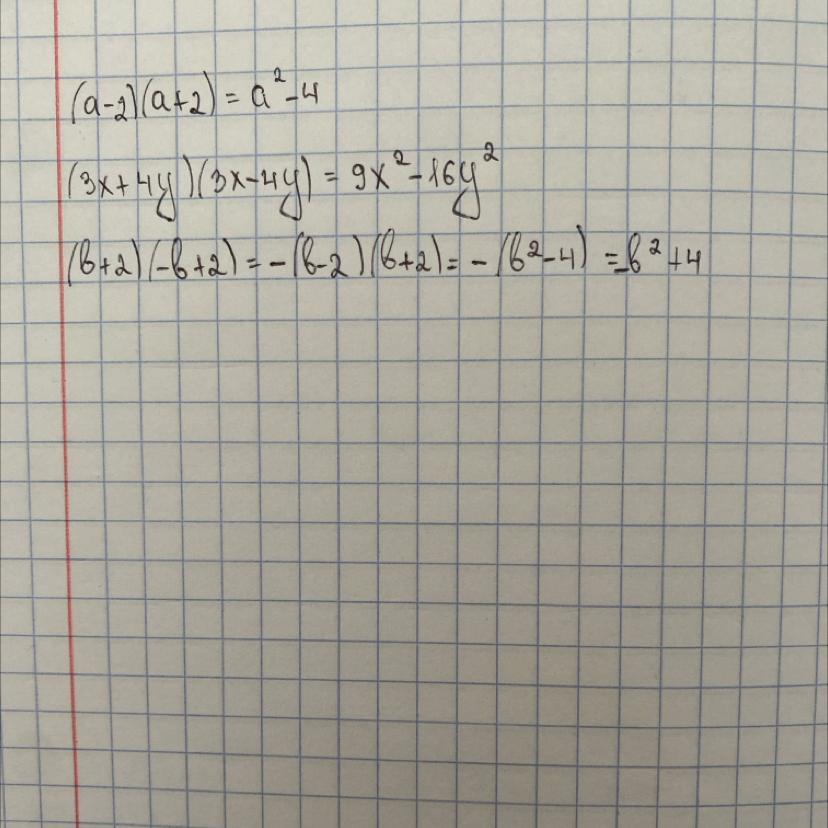 (a-2)(a+2) = a²-4
(3x+4y)(3x-4y) = 9x²-16y²
(b+2)(-b+2) = -(b-2)(b+2) = -(b²-4) = -b²+4